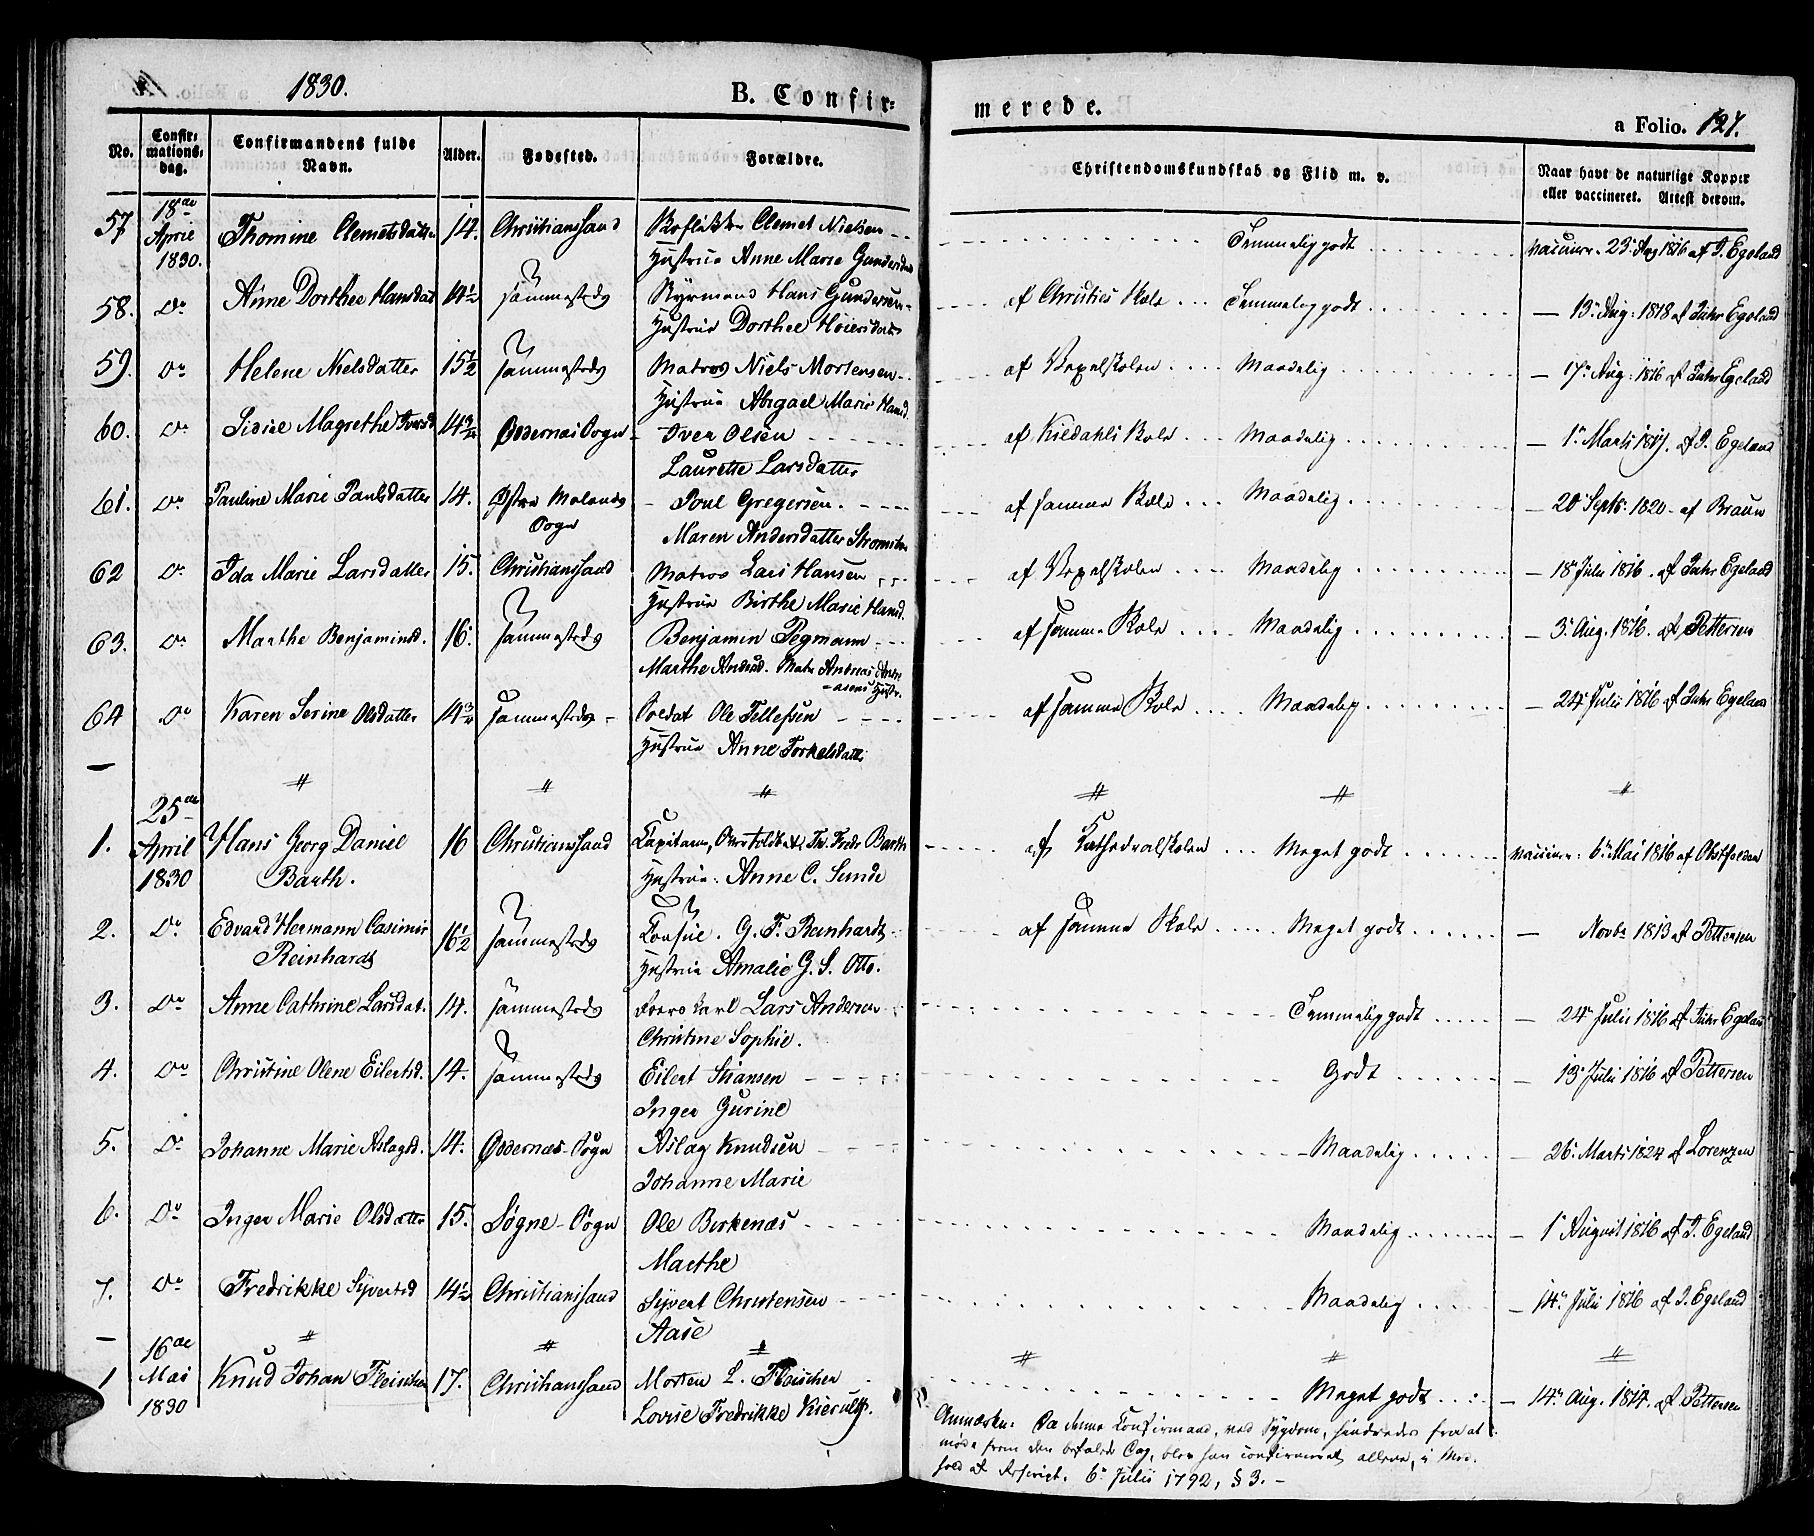 1830.
B. Confir=
merede.
a Folio. 127.
No.
Confir= mations= dag.
Confirmandens fulde Navn.
Alder.
Fødested.
Forældre.
Christendomskundskab og Flid m. v.
Naar havt de naturlige Kopper eller vaccineret. Attest derom.
57 18de April 1830. Thomine Clemetsdatter 14. Christianssand Clemet Nielsen Temmelig godt vaccineret 23 Aug 1816 af J. Egeland
Hustrue Anne Marie Gundersdat
58. Do Anne Dorthee Hansdat 14½ sammesteds Hans Gundersen af Christies Skole Temmelig godt — 13 Aug: 1818 af Jahr Egeland
Hustrue Dorthee Höiersdatter
59. Do Helene Nielsdatter 15½ sammesteds Matros Niels Mortensen af Vexelskolen Maadelig — 17 Aug: 1816 af Jahr Egeland
Hustrue Abigael Marie Hansd.
60. Do Sidsel Magrethe Iversd 14¾ Oddernæs Sogn Iver Olsen af Kieldahls Skole Maadelig — 1 Marts 1817. af J. Egeland
Laurette Larsdatter
61. Do Pauline Marie Paulsdatter 14. Østre Molands Sogn Poul Gregersen. af samme Skole Maadelig — 20 Septb: 1820 af Braun
Maren Andersdatter
62 Do Ida Marie Larsdatter 15. Christianssand Matros Lars Hansen af Vexelskolen Maadelig — 18 Julii 1816. af Jahr Egeland
Hustrue Birthe Marie Hansd.
63. Do Marthe Benjamind. 16. sammesteds Benjamin Pegmann af samme Skole Maadelig — 3 Aug. 1816. af Pettersen
Marthe Andersd. Matr Andreas Andreasens Hustr.
64 Do Karen Serine Olsdatter 14¾ sammesteds Soldat Ole Tellefsen af samme Skole Maadelig — 24 Julii 1816 af Jahr Egeland
Hustrue Anne Torkelsdatter
1. 25de April 1830 Hans Georg Daniel Barth. 16 Christianssand Capitain Fredr Barth af Kathedralskolen Meget godt vaccineret 6 Mai 1816 af Obstfelder
Hustrue: Anne C. Sunde
2. Do Edvard Hermann Casimir Reinhardt 16½ sammesteds Consul. G. F. Reinhardt af samme Skole Meget godt — Novbr 1813 af Pettersen
Hustrue Amalie G. S. Otto.
3. Do Anne Cathrine Larsdat. 14. sammesteds Lars Andersen Temmelig godt — 24 Julii 1816 af Jahr Egeland
Christine Sophie.
4. Do Christine Olene Eilertsd. 14. sammesteds Eilert Stiansen Godt — 13 Julii 1816 af Pettersen
Inger Gurine
5. Do Johanne Marie Aslagsd. 14. Oddernæs Sogn Aslag Knudsen Maadelig — 26 Marts 1824 af Lorenzen
Johanne Marie
6. Do Inger Marie Olsdatter 15. Søgne Sogn Ole Birkenæs Maadelig — 1 August 1816 af J. Egeland
Marthe
7. Do Fredrikke Syvertsd 14½ Christianssand Syvert Christensen Maadelig — 14 Julii 1816 af J. Egeland
Aase
1 16de Mai 1830 Knud Johan Fleischer 17. Christianssand Morten L. Fleischer Meget godt — 14 Aug. 1814. af Pettersen
Lovise Fredrikke Kierulf.
Anmærkn: Da denne Confirmand, ved Sygdom, hindredes fra at
møde frem den befalede Dag, blev han confirmeret allene, i Med-
hold af Rescript. 6 Julii 1792, § 3. -